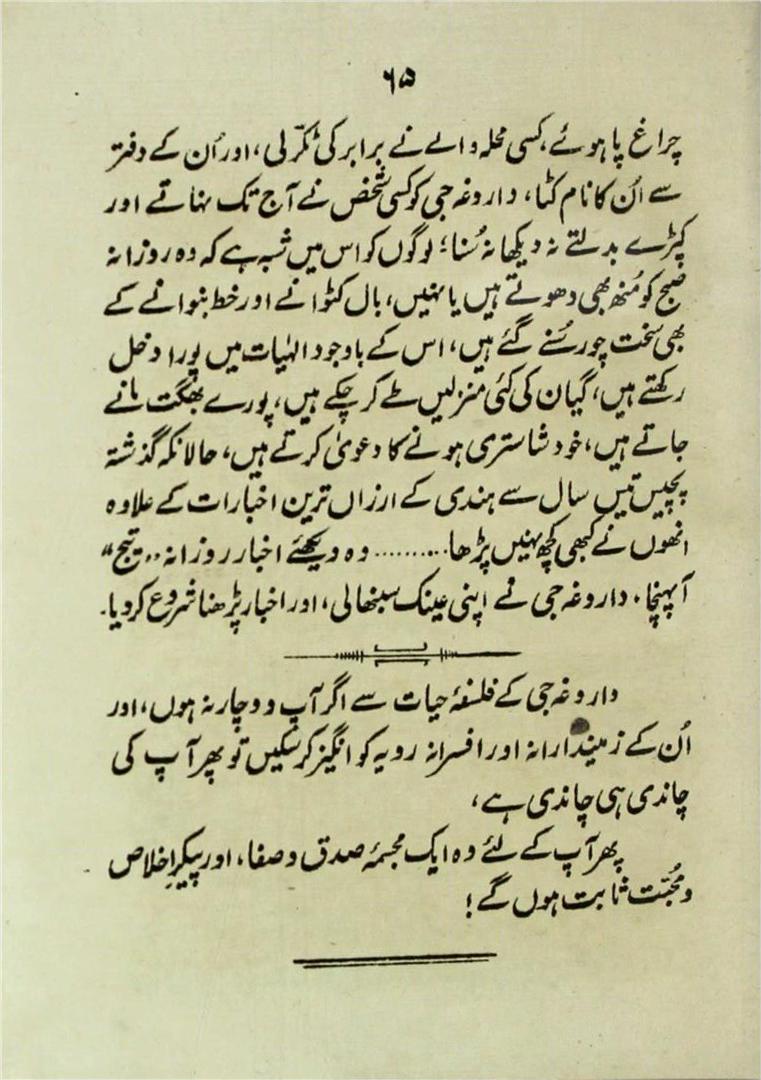 ۶۵
چراغ پا ہوئے، کسی محلہ والے نے برابر کی ٹکّر لی، اور اُن کے دفتر
سے اُن کا نام کٹا، داروغہ جی کو کسی شخص نے آج تک نہاتے اور
کپڑے بدلتے نہ دیکھا نہ سُنا؛ لوگوں کو اس میں شبہ ہے کہ وہ روزانہ
صبح کو مُنھ بھی دھوتے ہیں یا نہیں، بال کٹوانے اور خط بنوانے کے
بھی سخت چور سُنے گئے ہیں، اس کے باوجود الہٰیات میں پورا دخل
رکھتے ہیں، گیان کی کئی منزلیں طے کر چکے ہیں، پورے بھگت مانے
جاتے ہیں، خود شاستری ہونے کا دعویٰ کرتے ہیں، حالانکہ گذشتہ
پچیس تیس سال سے ہندی کے ارزاں ترین اخبارات کے علاوہ
انھوں نے کبھی کچھ نہیں پڑھا.......... وہ دیکھئے اخبار روزانہ ،،تیج“
آ پہنچا. داروغہ جی نے اپنی عینک سنبھالی، اور اخبار پڑھنا شروع کر دیا.
داروغہ جی کے فلسفۂ حیات سے اگر آپ دوچار نہ ہوں، اور
اُن کے زمیندارانہ اور افسرانہ رویہ کو انگیز کر سکیں تو پھر آپ کی
چاندی ہی چاندی ہے،
پھر آپ کے لئے وہ ایک مجسمۂ صدق و صفا، اور پیکرِ اخلاص
و محبّت ثابت ہوں گے!